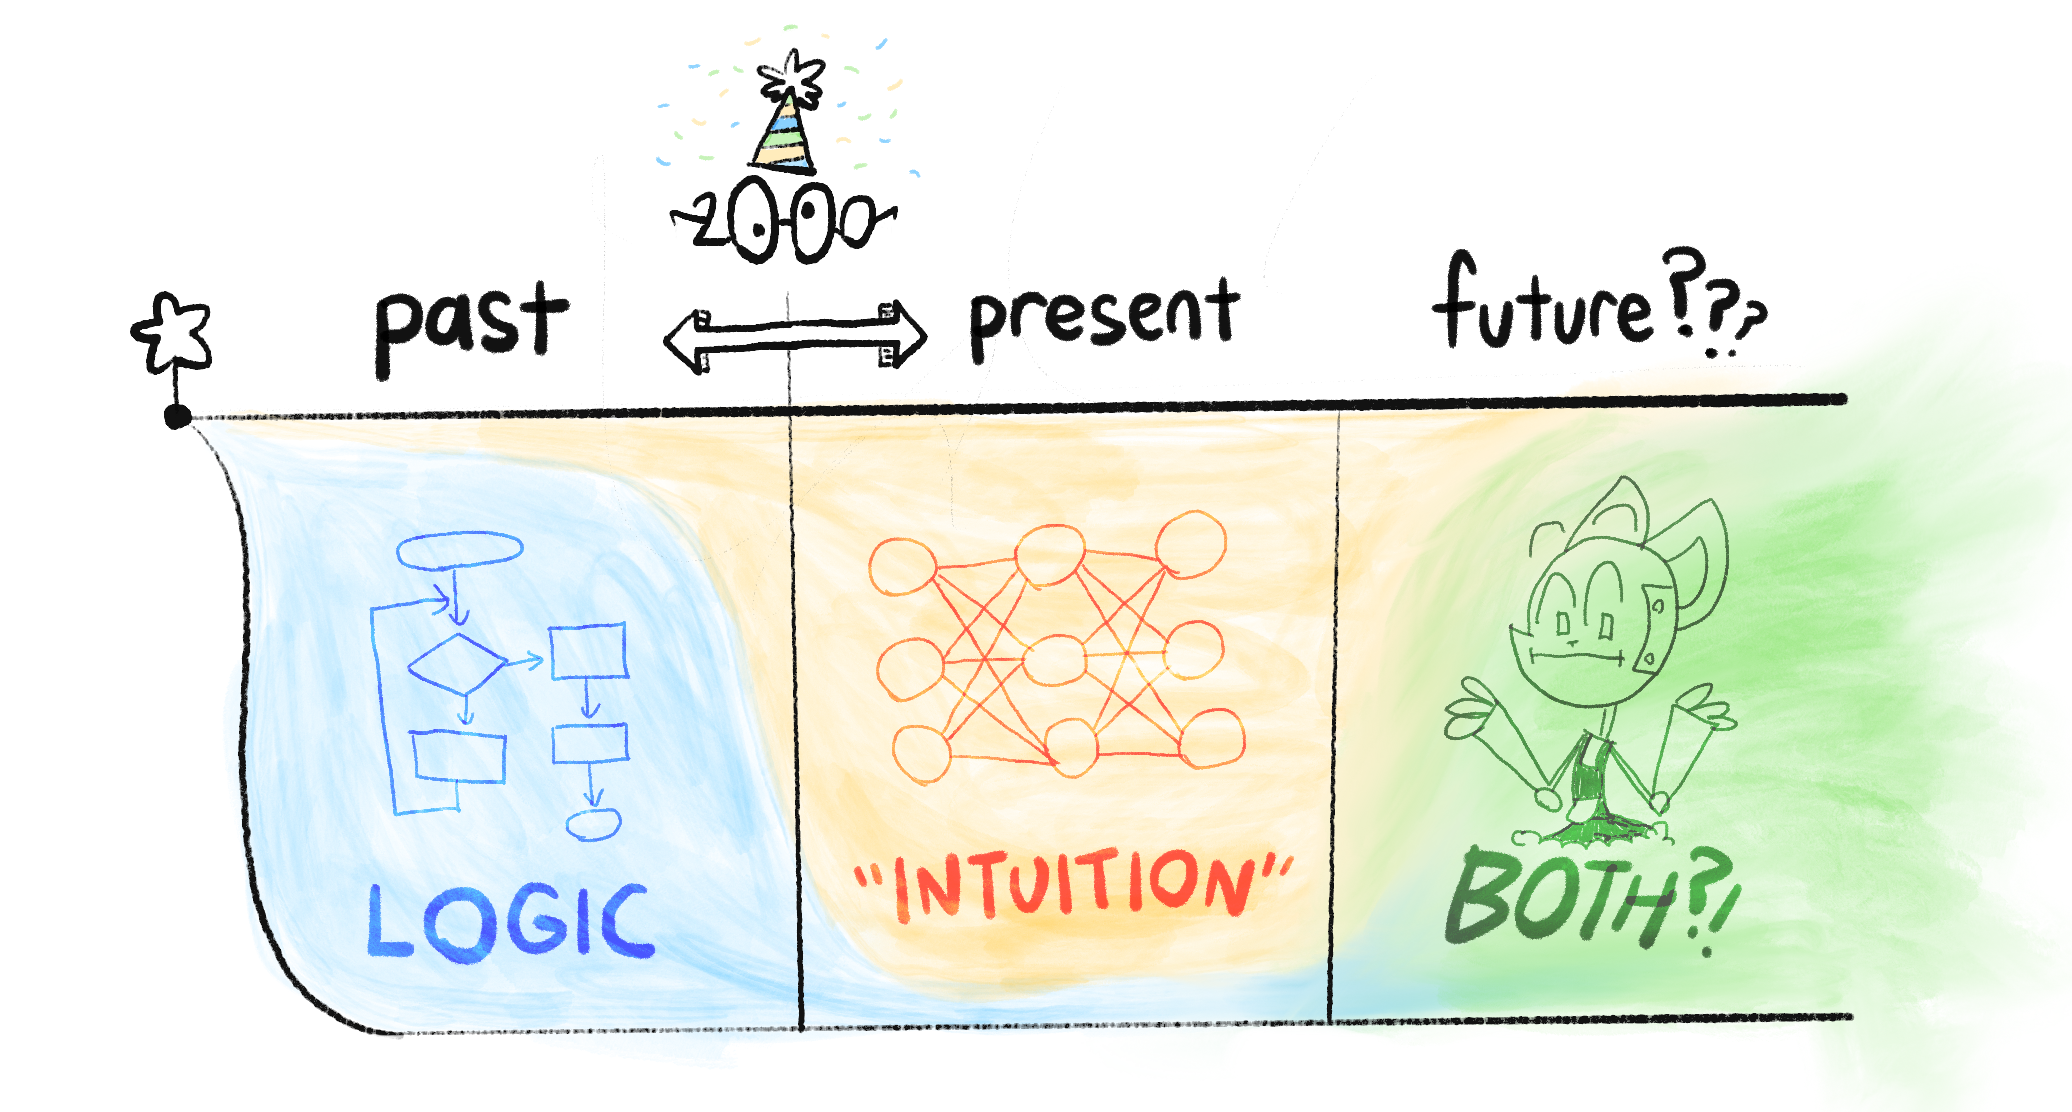 2000
past
present
future???
LOGIC
"INTUITION"
BOTH?!